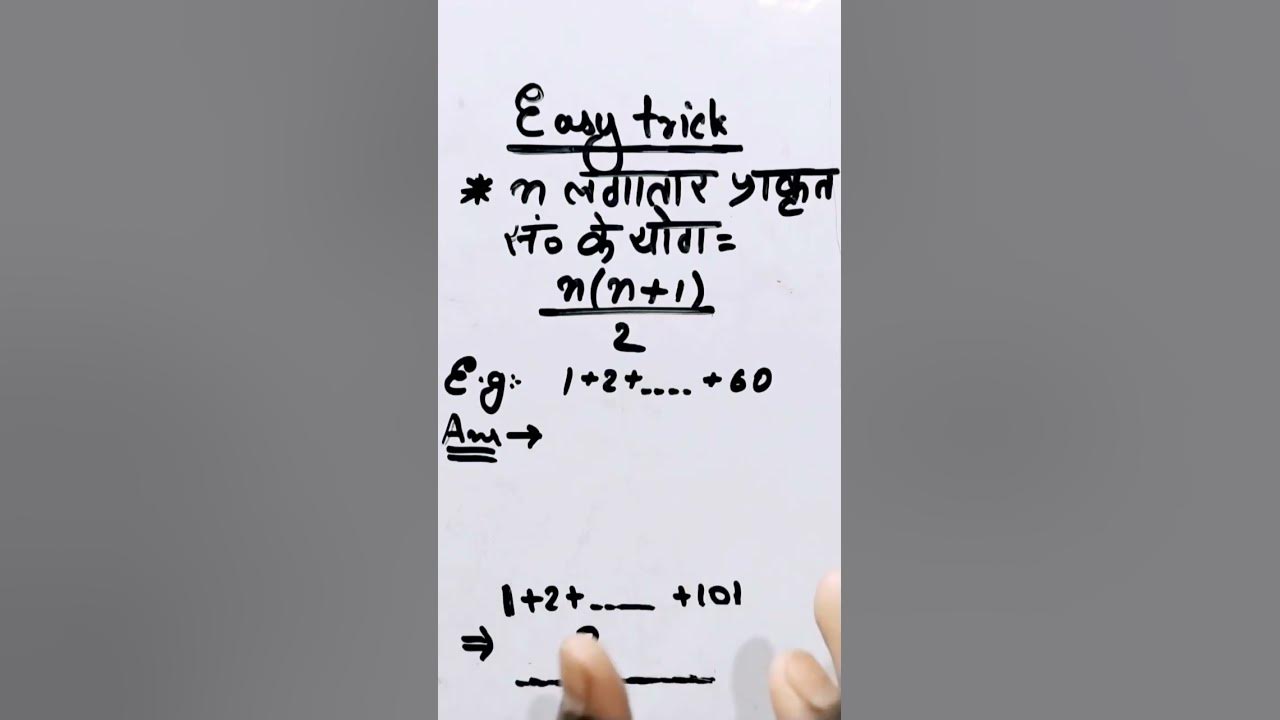 Easy trick
* n लगातार प्राकृत
सं० के योग =
n(n+1)
2
E.g:- 1+2+.... +60
Ans →
1+2+.... +101
⇒